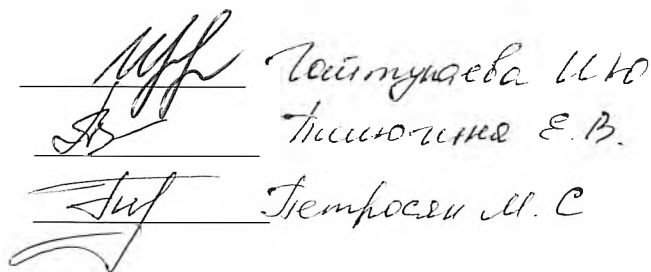 Гайтукаева И Ю
Пилюгина Е. В.
Петросян М. С